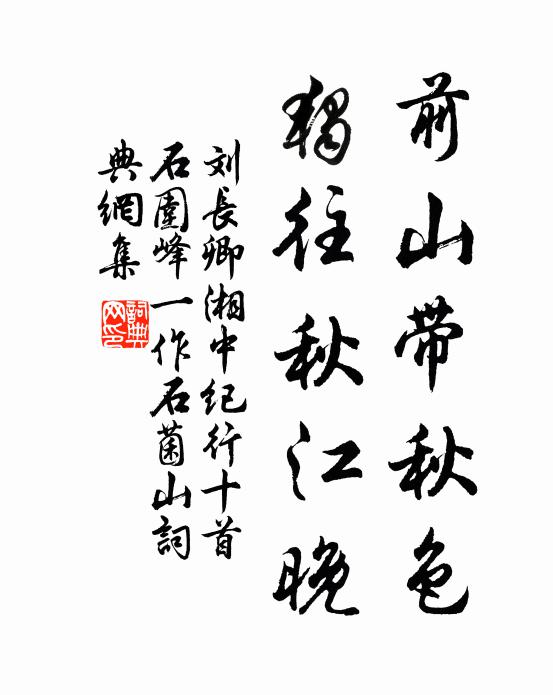 前山带秋色
獨往秋江晚
刘長卿湘中纪行十首
石圍峰一作石菌山詞
典網集
詞典網印